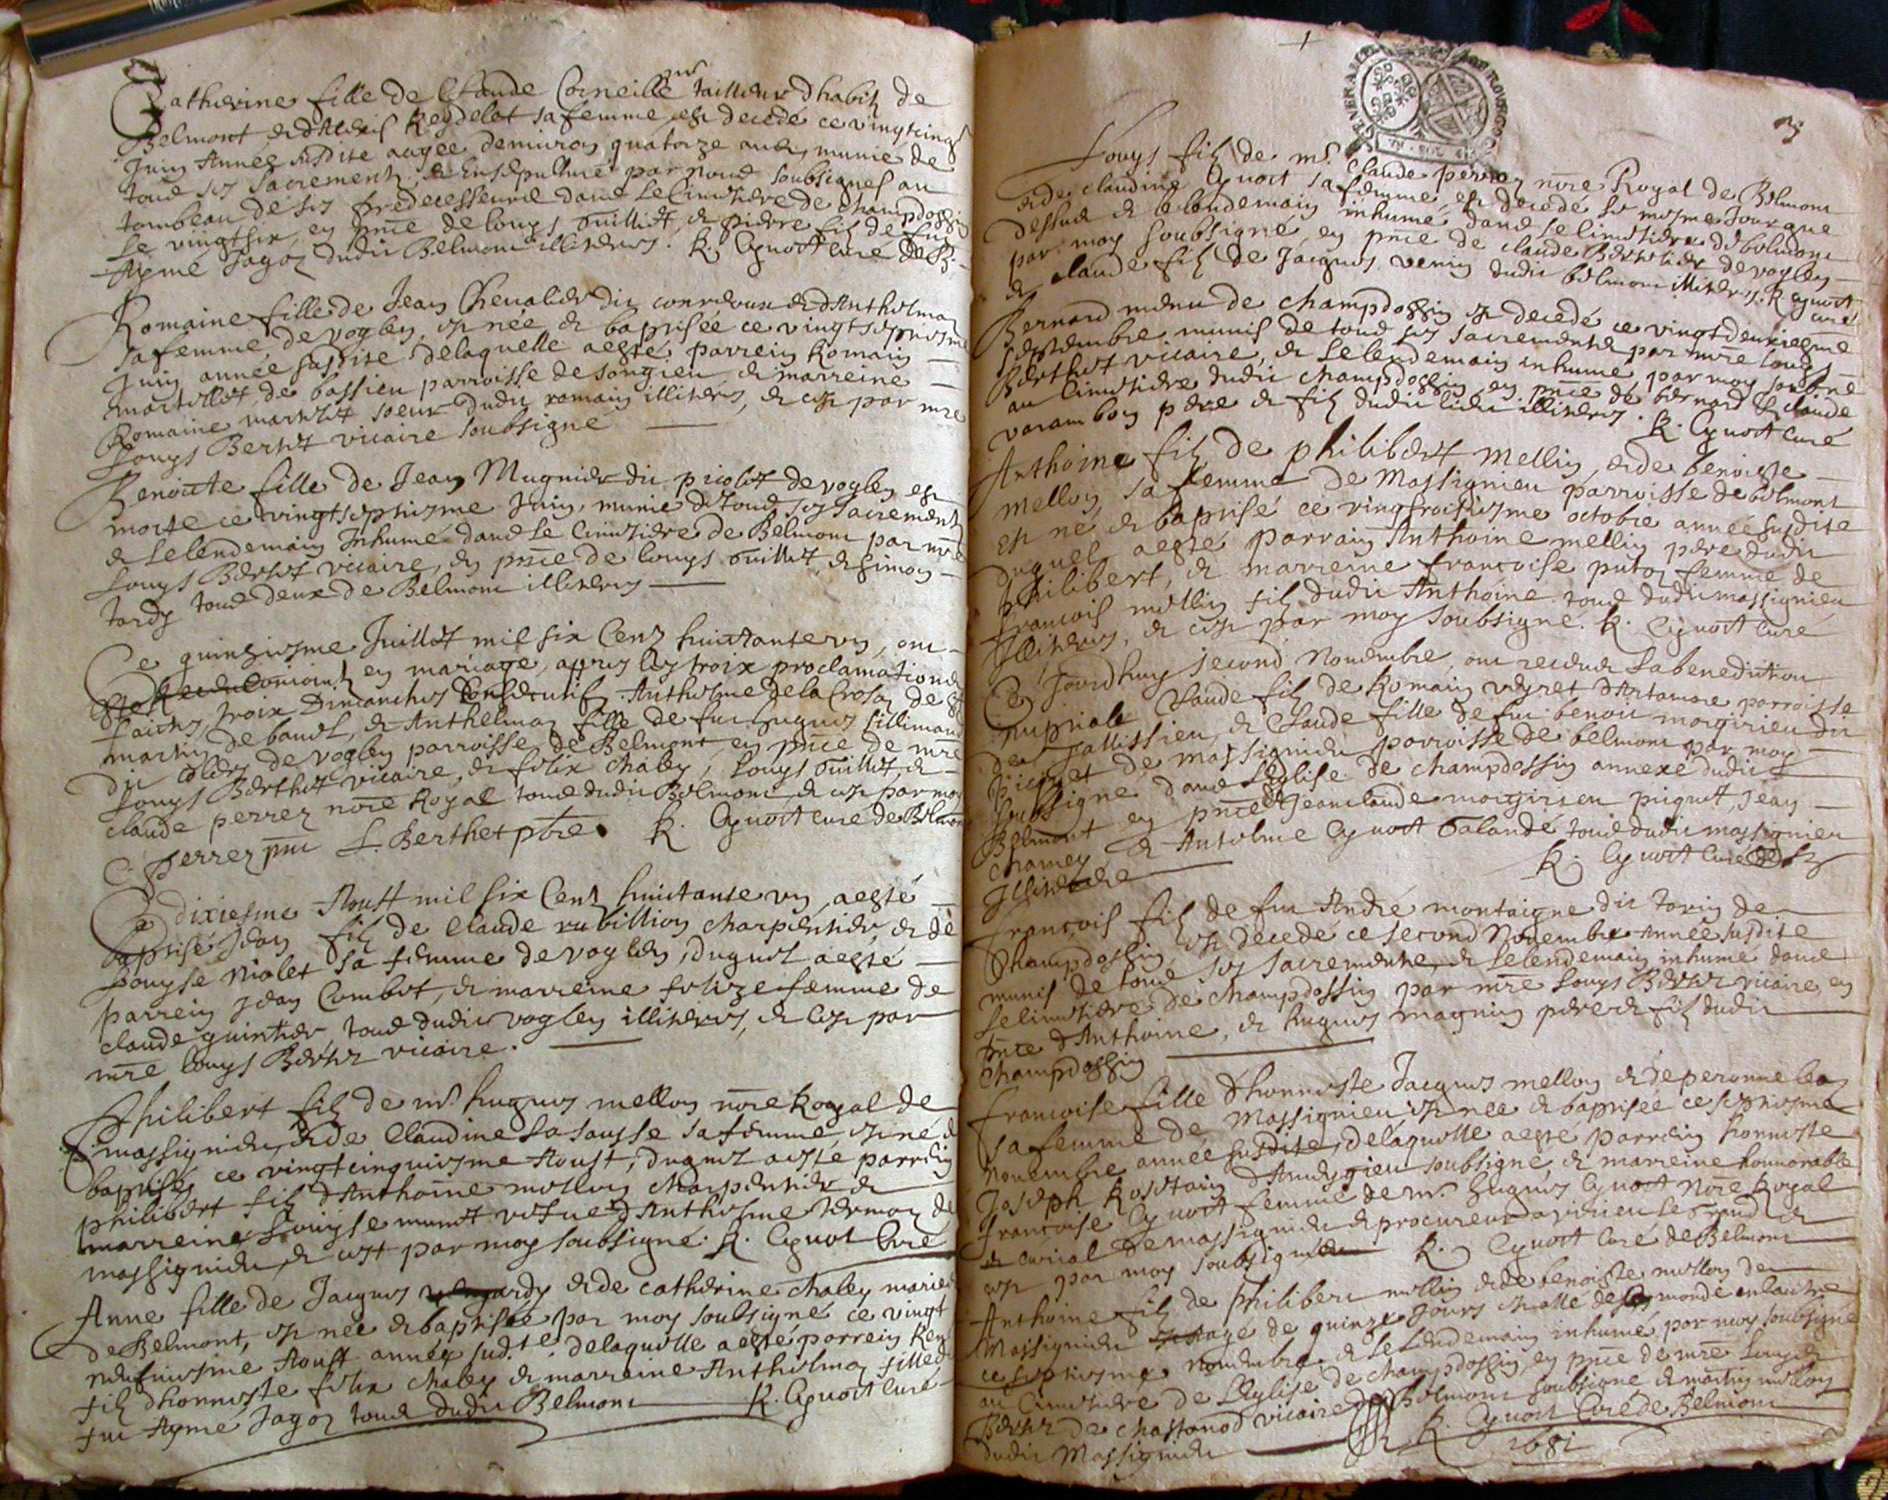 Catherine fille de Claude Corneille tailleur dhabitz de
Belmont et Reydelet sa femme est decedé ce vingtcinq
Juin Année susdite aagée denuiron quatorze ans, munie de
tous ses Sacrementz, et Ensepulturé par nous soubsignes au
tombeau de ses predecesseurs dans le Cimetiere de Champdossin
le vingtsix, en pnce de Louys Guillet, et pierre filz de feu
Aymé Jagoz dudit Belmont illiteres. R. Cynost Curé de B.
Romaine fille de Jean Cheualier dit et dAnthelmaz
sa femme, de voglen, est née et baptisée ce vingtseptiesme
Juin année susdite delaquelle aesté parrein Romain
martellet, de bassieu parroisse de songieu et marreine
Romaine martelet soeur dudit romain illiteres, et cest par mre
Louys Bertet vicaire soubsigné
Benoiste fille de Jean Mugnier dit picolet de voglen est
morte ce vingtseptiesme Juin, munie de tous ses sacrementz
et Lelendemain Inhumé dans Le Cimetiere de Belmont par mre
Louys Bertet vicaire, en pnce de Louys Guillet, et Simon
tardy tous deux de Belmont illiteres
Ce quinziesme Juillet mil six Centz huictante vn, ont
este conioint en mariage, apres les troix proclamations
faictes, troix Dimanches Consecutifz Anthesme dela Crosaz de St
martin de bauel, et Anthelmaz fille de feu hugues fillimand
dit de voglen parroisse de Belmont, en pnce de mre
Louys Berthet vicaire, et felix Chaley, Louys Guillet et
claude perrez nore Royal tous dudit Belmont et cest par moy
C. Perrez pnt L. Berthet pbre R. Cynost cure de Belmont
Ce dixiesme Aoust mil six Centz huictante vn, aesté
baptisé Jean filz de Claude rubillion charpentier, et de
Louyse Niolet sa femme de voglen, duquel aesté
parrein Jean Combet, et marreine felize femme de
claude quintier tous dudit voglen illiteres, et cest par
mre Louys Bertet vicaire.
Philibert filz de mr. hugues mellon nore Royal de
massignieu et de Claudine La sausse sa femme, est né et
baptisé ce vingtcinquiesme Aoust, duquel aeste parrein
philibert filz dAnthoine mellon charpentier et
marreine Louyse munet vefue dAnthesme de
massignieu, et cest par moy soubsigné. R. Cynost Curé
Anne fille de Jacques et de catherine chaley mariez
de Belmont, est née et baptisée par moy soubsigné ce vingt
neufuiesme Aoust année susd.te delaquelle aesté parrein
filz dhonneste felix chaley et marreine Anthelmaz fille de
feu Aymé Jagoz tous dudit Belmont R. Cynost Curé
3
Louys filz de mr. Claude perrez nore Royal de Belmont
et de claudine Cynost sa femme, est decedé le mesme Jour que
dessus et le lendemain inhumé dans le cimetiere de belmont
par moy soubsigné, en pnce de claude Berthier de voglen
et claude filz de Jacques dudit belmont illiteres. R. Cynost
curé
Bernard menu de champdossin est decedé ce vingtdeuxiesme
septembre munis de tous ses sacrements par mre Louys
Berthet vicaire, et Lelendemain inhumé par moy soubsné
au Cimetiere dudit champdossin, en pnce de bernard et claude
varambon pere et filz dudit lieu illiteres. R. Cynost Curé
Anthoine filz de philibert mellin, et de benoiste
mellon, sa femme de Massignieu parroisse de belmont
est né et baptisé ce vingtroisiesme octobre année susdite
duquel aesté parrain Anthoine mellin pere dudit
philibert, et marreine francoise putoz femme de
francois mellin filz dudit Anthoine tous dudit massignieu
Illiteres, et cest par moy soubsigné. R. Cynost Curé
Ce Jourdhuy second Nouembre, ont receus La benediction
nuptiale Claude filz de Romain veyret dArtamare parroisse
de yallissieu, et Claude fille de feu benoit morgirieu dit
piequet de massignieu parroisse de belmont par moy
soubsigné dans Leglise de champdossin annexe dudit
Belmont en pnce de Jeanclaude morgirieu piquet, Jean
chamey et Antelme Cynost Galande tous dudit massignieu
Illiteres R. Cynost Curé de B.
Francois filz de feu André montaigne dit tarin de
Champdossin, est decede ce second Nouembre Année susdite
munis de tous ses sacrements, et Lelendemain inhumé dans
le cimetiere de champdossin par mre Louys Bertet vicaire, en
pnce dAnthoine, et hugues magnin pere et filz dudit
Champdossin
Francoise fille dhonneste Jacques mellon et de peronne
sa femme de Massignieu est née et baptisée ce septiesme
Nouembre année susdite, delaquelle aesté parrein honneste
Joseph Rosetain dAndyrieu soubsigné et marreine honnorable
Francoise Cynost femme de mr. hugues Cynost Nore Royal
et curial de massignieu et procureur a virieu le grand et
cest par moy soubsigné R. Cynost Curé de Belmont
Anthoine filz de philibert mellin et de benoiste mellon de
Massignieu aagé de quinze Jours est allé de ce monde en lautre
ce septiesme nouembre et Lelendemain inhumé par moy soubsigné
au Cimetiere de LEglise de champdossin, en pnce de mre Louys
Bertet de chastonod vicaire de Belmont soubsigné et martin mellon
dudit Massignieu R. Cynost Curé de Belmont
1681